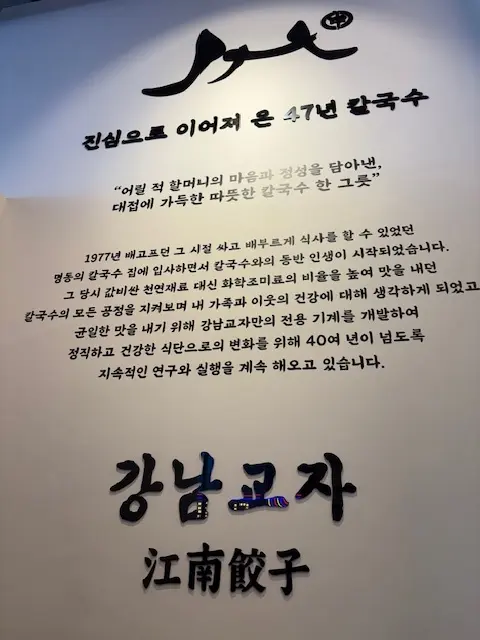 진심으로 이어져 온 47년 칼국수
“어릴 적 할머니의 마음과 정성을 담아낸,
대접에 가득한 따뜻한 칼국수 한 그릇”
1977년 배고프던 그 시절 싸고 배부르게 식사를 할 수 있었던
명동의 칼국수 집에 입사하면서 칼국수와의 동반 인생이 시작되었습니다.
그 당시 값비싼 천연재료 대신 화학조미료의 비율을 높여 맛을 내던
칼국수의 모든 공정을 지켜보며 내 가족과 이웃의 건강에 대해 생각하게 되었고
균일한 맛을 내기 위해 강남교자만의 전용 기계를 개발하여
정직하고 건강한 식단으로의 변화를 위해 40여 년이 넘도록
지속적인 연구와 실행을 계속 해오고 있습니다.
강남교자
江南餃子